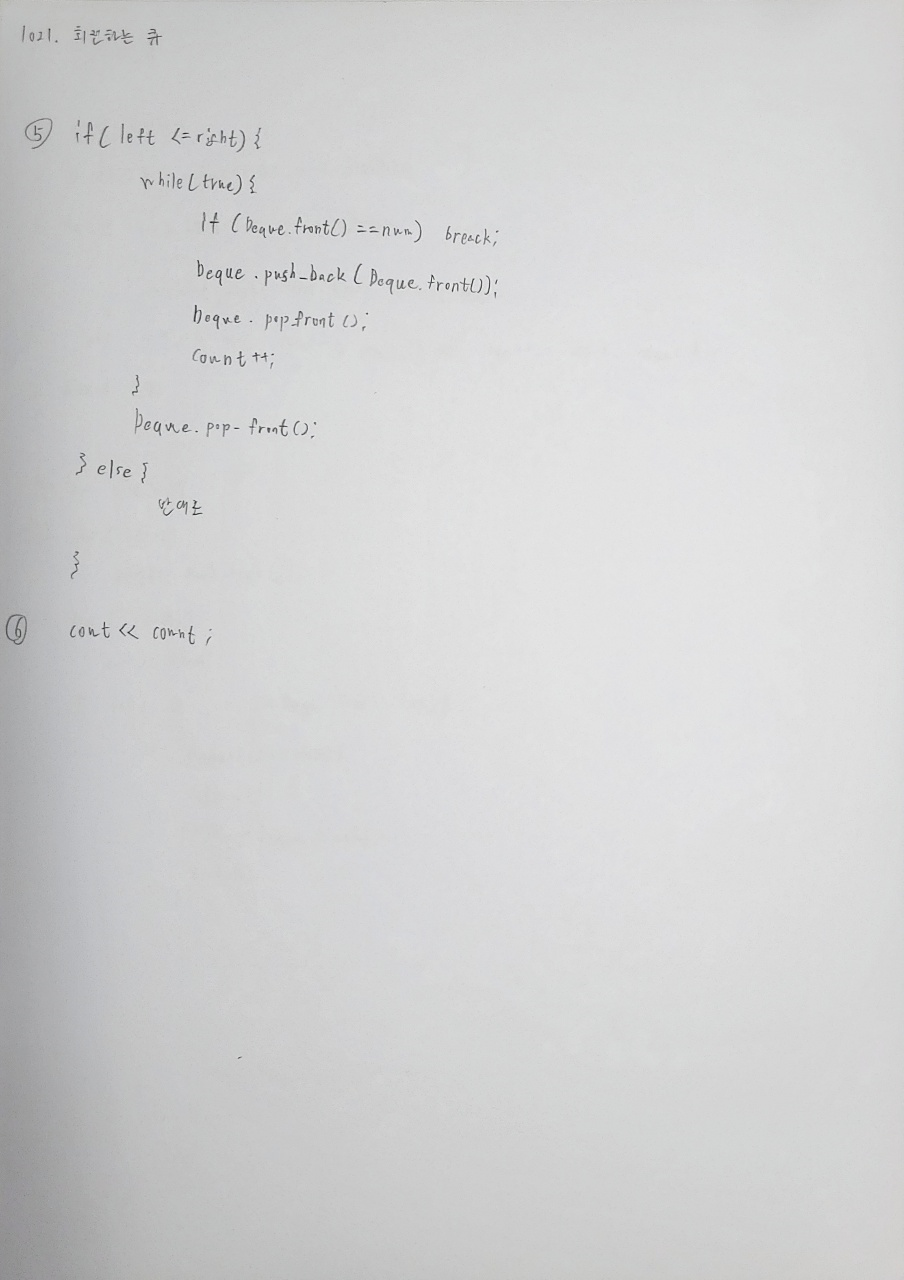 1021. 회전하는 큐
⑤ if( left <= right) {
while(true) {
If (Deque.front() == num) breack;
Deque.push_back(Deque.front());
Deque.pop_front();
Count ++;
}
Deque.pop-front();
} else {
반대로
}
⑥ cout << count ;